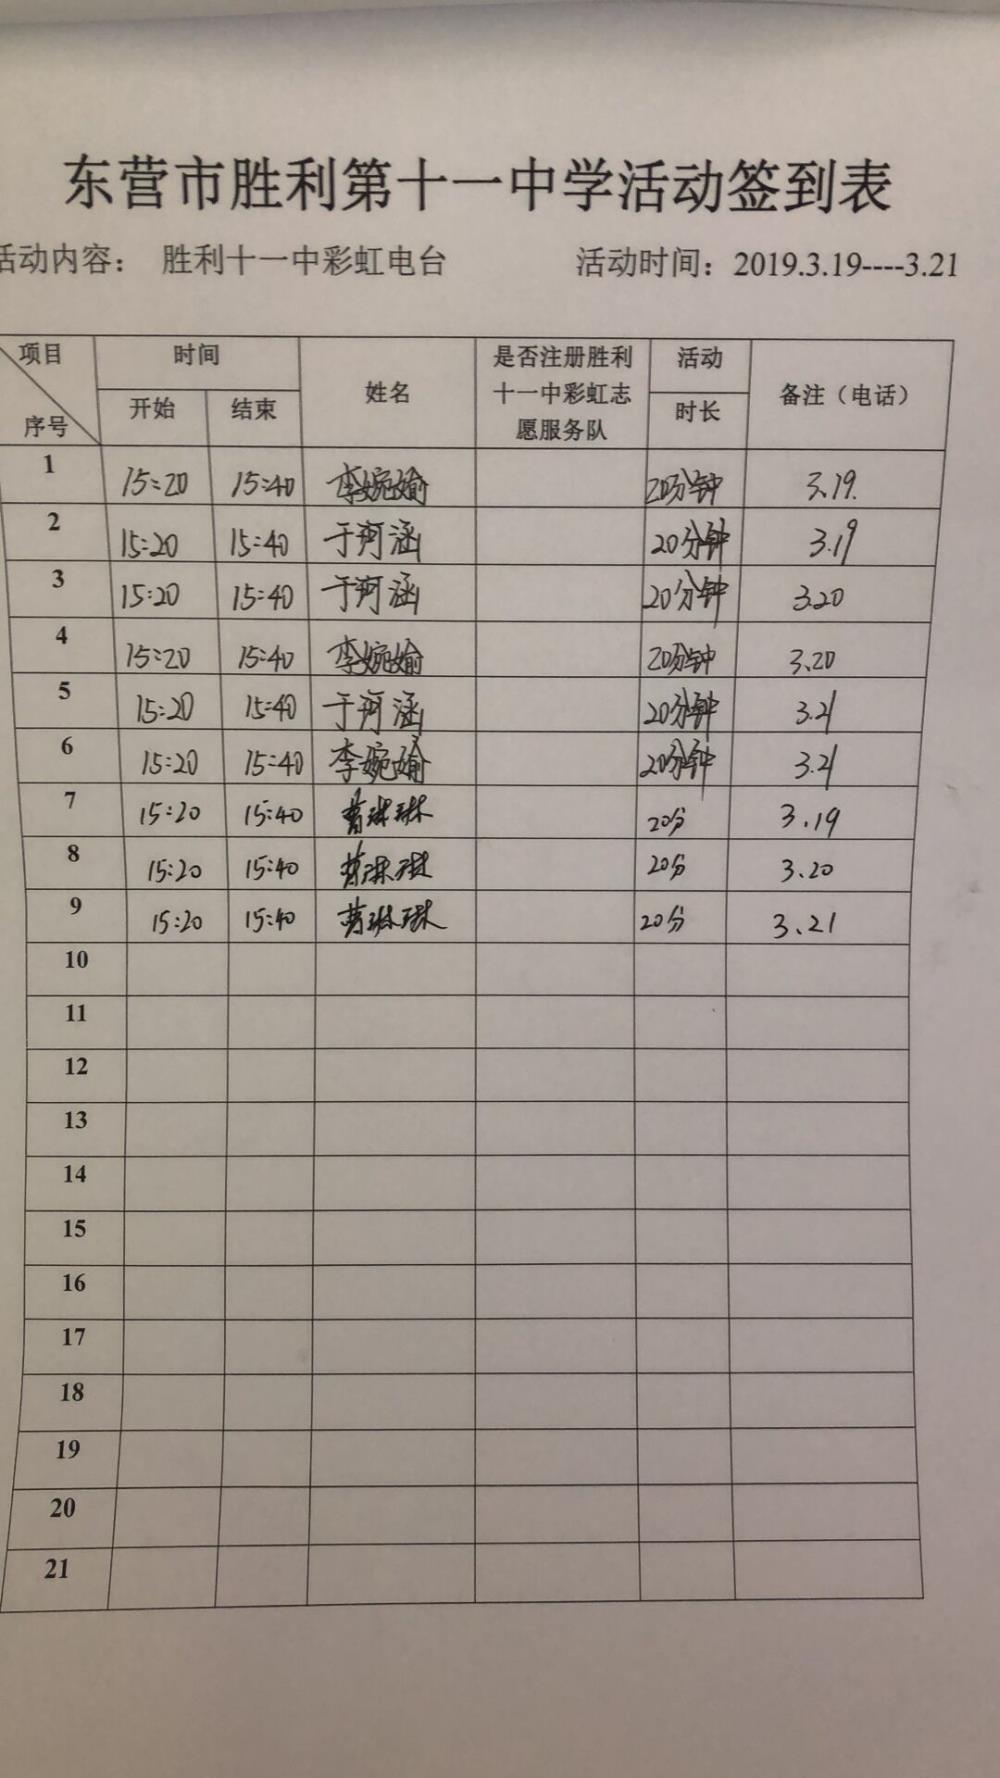 东营市胜利第十一中学活动签到表
活动内容： 胜利十一中彩虹电台 活动时间：2019.3.19----3.21
项目 序号 时间 开始 结束 姓名 是否注册胜利十一中彩虹志愿服务队 活动时长 备注（电话）
1 15:20 15:40 李婉媮 20分钟 3.19.
2 15:20 15:40 于珂涵 20分钟 3.19
3 15:20 15:40 于珂涵 20分钟 3.20
4 15:20 15:40 李婉媮 20分钟 3.20
5 15:20 15:40 于珂涵 20分钟 3.21
6 15:20 15:40 李婉媮 20分钟 3.21
7 15:20 15:40 20分 3.19
8 15:20 15:40 20分 3.20
9 15:20 15:40 20分 3.21
10
11
12
13
14
15
16
17
18
19
20
21